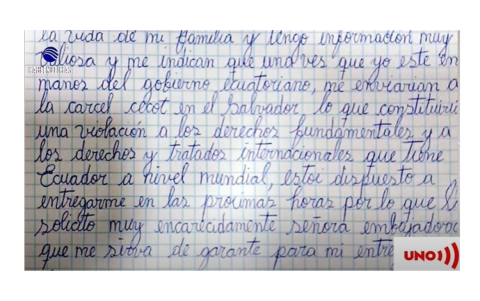 la vida de mi familia y tengo información muy
valiosa y me indican que una ves que yo este en
manos del gobierno ecuatoriano, me enviarian a
la carcel cecot en el Salvador lo que constituiri
una violación a los derechos fundamentales y a
los derechos y tratados internacionales que tiene
Ecuador a nivel mundial, estoi dispuesto a
entregarme en las proximas horas por lo que l
solicito muy encarecidamente señora embajadora
que me sirva de garante para mi entre
UNO